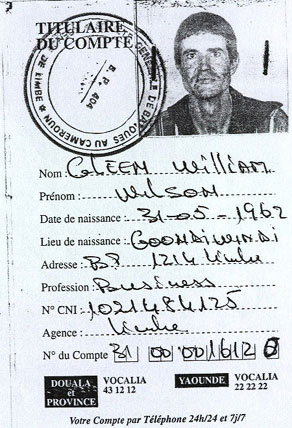 TITULAIRE
DU COMPTE
GENERALE DE BANQUES AU CAMEROUN
DE LIMBE
B. P. 404
Nom : GREEN William
Prénom : Wilson
Date de naissance : 31-05-1962
Lieu de naissance : GOONDIWINDI
Adresse : BP 1214 Limbe
Profession : Business
N° CNI : 1021484125
Agence : Limbe
N° du Compte 31 00 001612
DOUALA et PROVINCE VOCALIA 43 12 12
YAOUNDE VOCALIA 22 22 22
Votre Compte par Téléphone 24h/24 et 7j/7